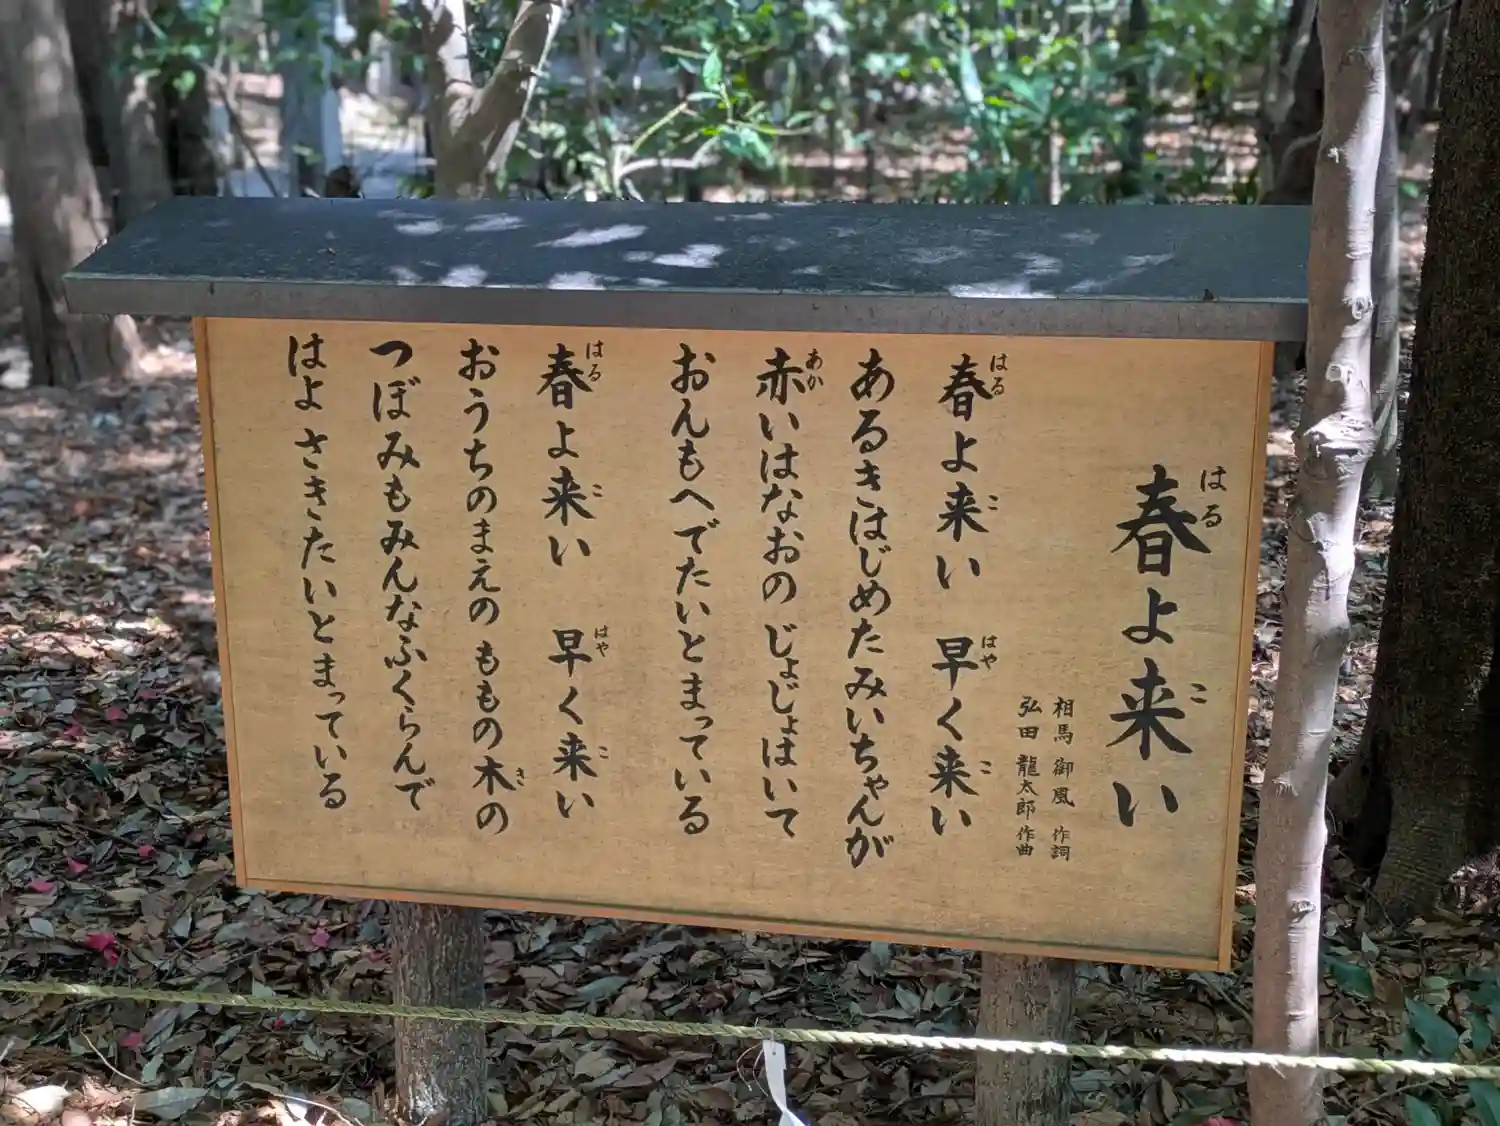 春よ来い
相馬 御風 作詞
弘田 龍太郎 作曲
春よ来い 早く来い
あるきはじめたみいちゃんが
赤いはなおの じょじょはいて
おんもへでたいとまっている
春よ来い 早く来い
おうちのまえの ももの木の
つぼみもみんなふくらんで
はよ さきたいと まっている